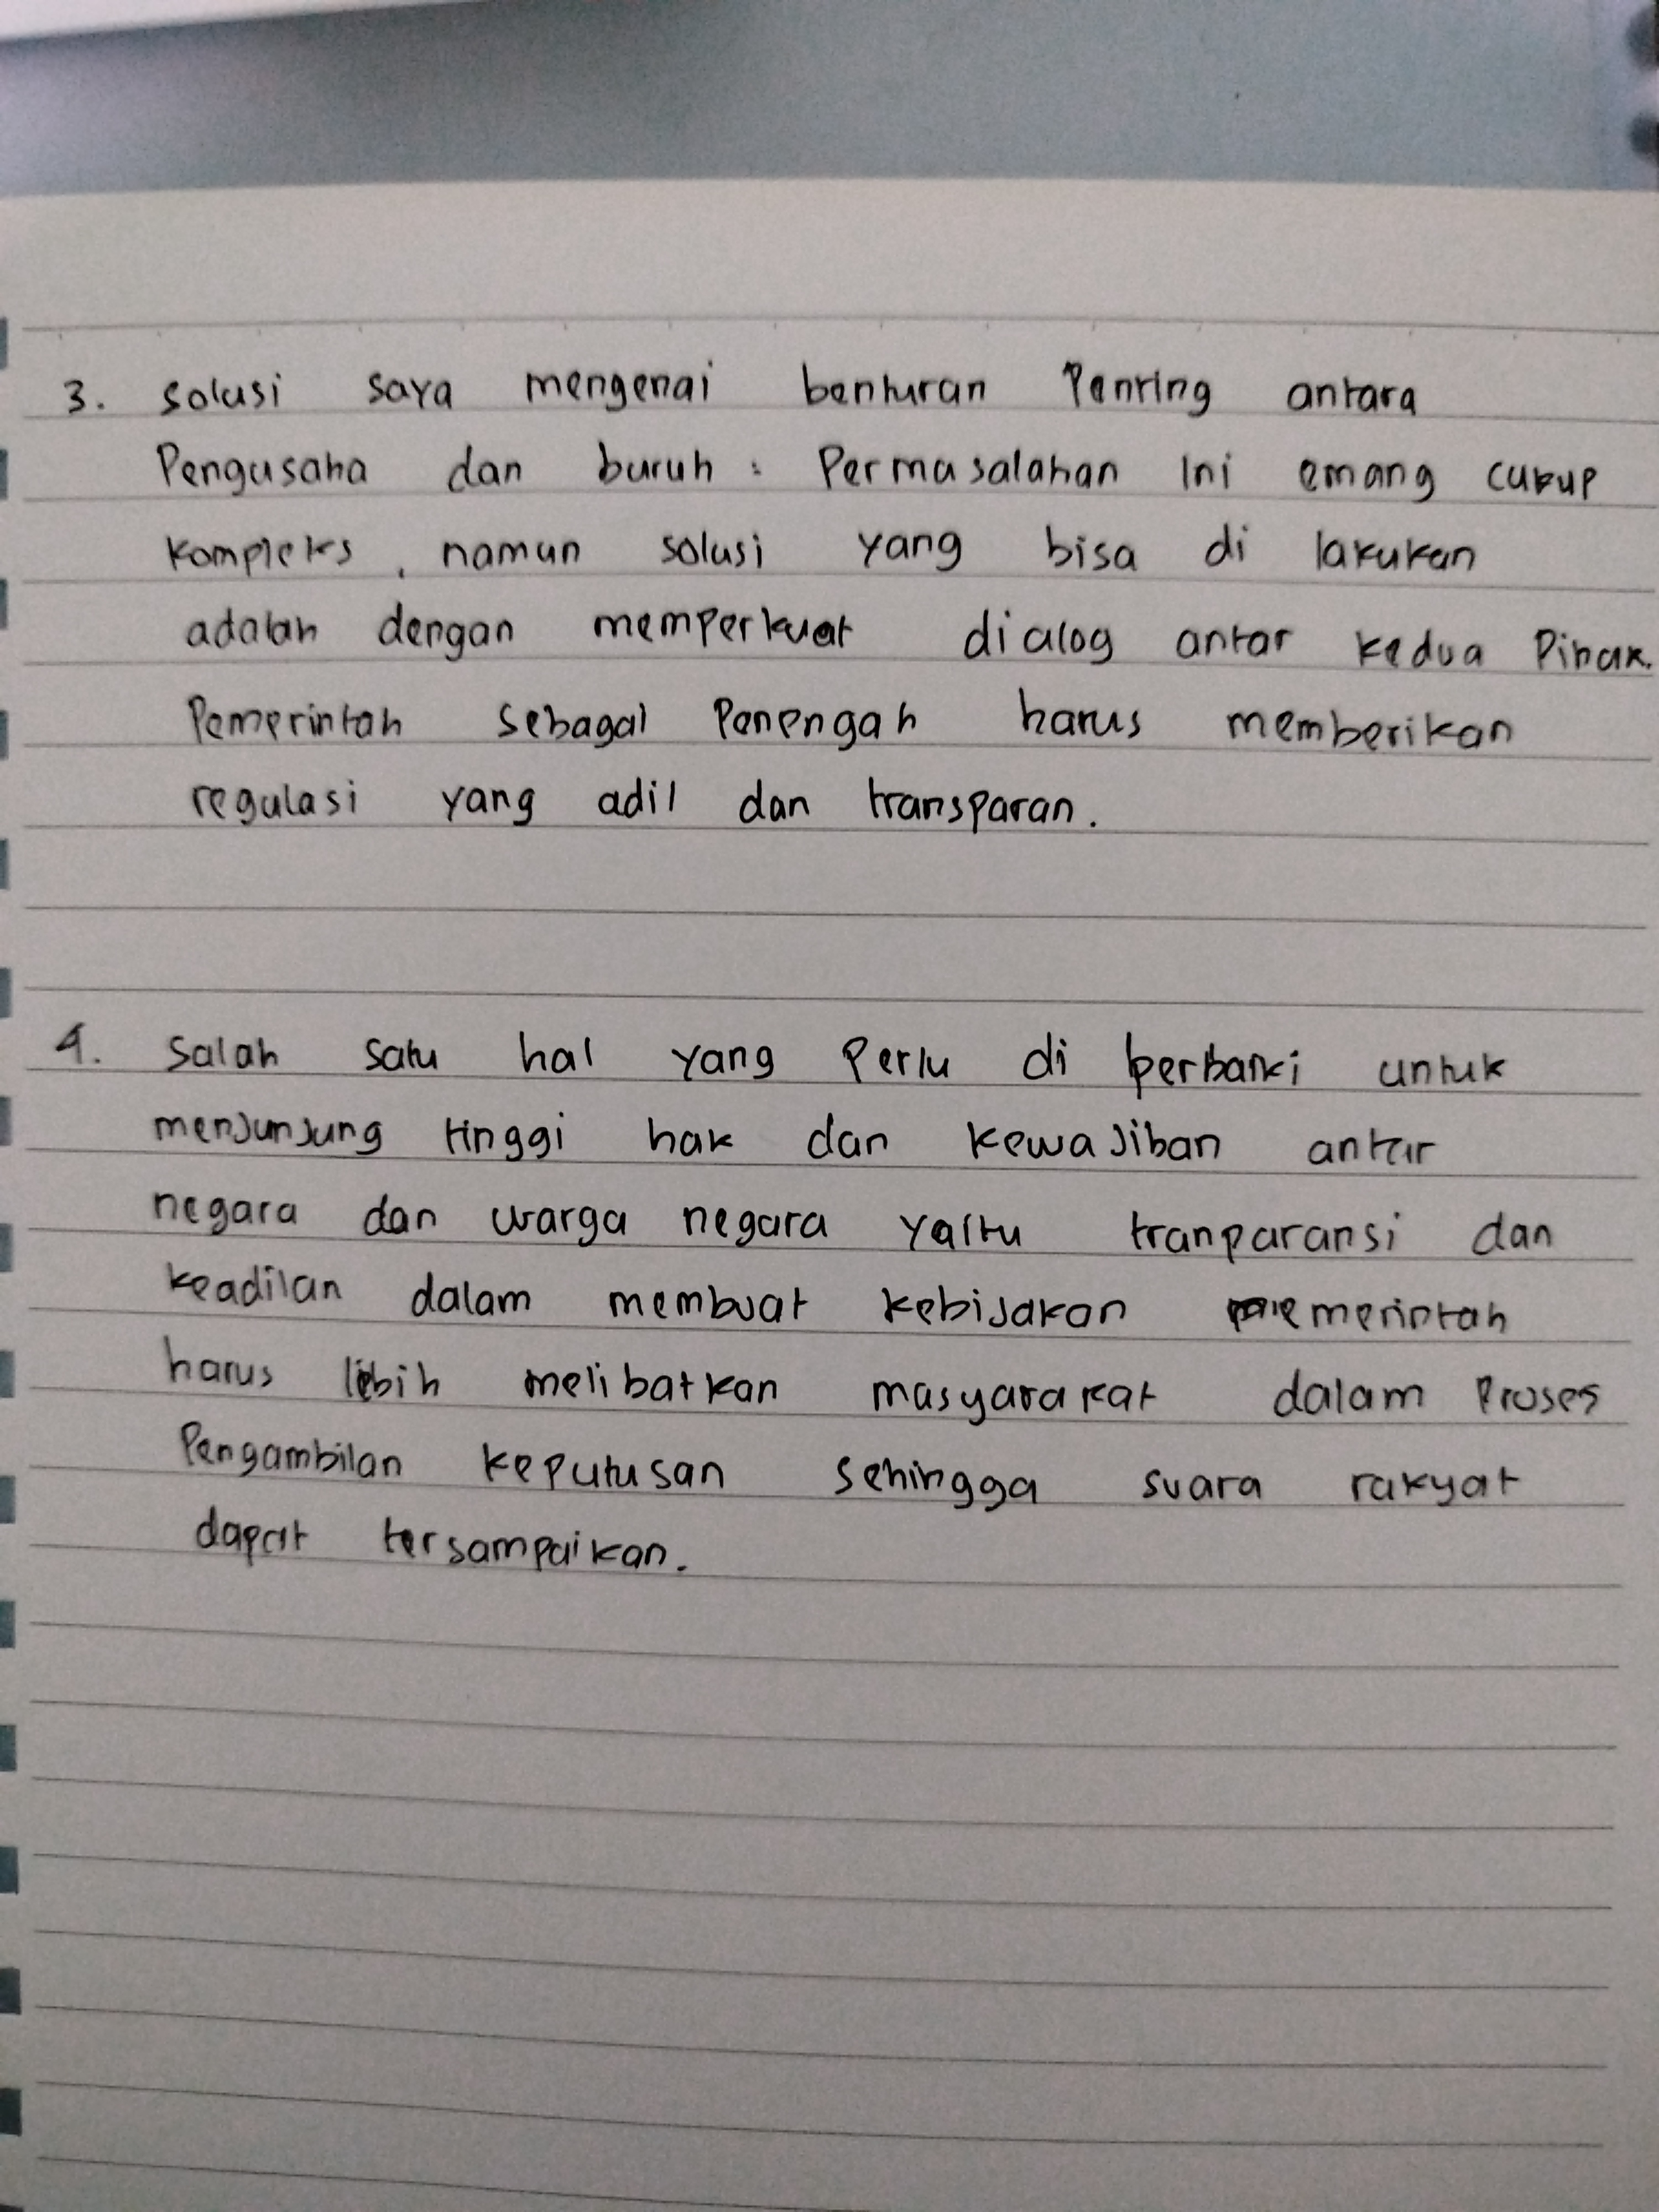 3. solusi saya mengenai benturan Penting antara
Pengusaha dan buruh : Permasalahan Ini emang cukup
kompleks, namun solusi yang bisa di lakukan
adalah dengan memperkuat dialog antar kedua Pihak.
Pemerintah sebagai Penengah harus memberikan
regulasi yang adil dan transparan.
4. Salah satu hal yang Perlu di perbaiki untuk
menjunjung tinggi hak dan kewajiban antar
negara dan warga negara yaitu tranparansi dan
keadilan dalam membuat kebijakan pemerintah
harus lebih melibatkan masyarakat dalam Proses
Pengambilan keputusan sehingga suara rakyat
dapat tersampaikan.